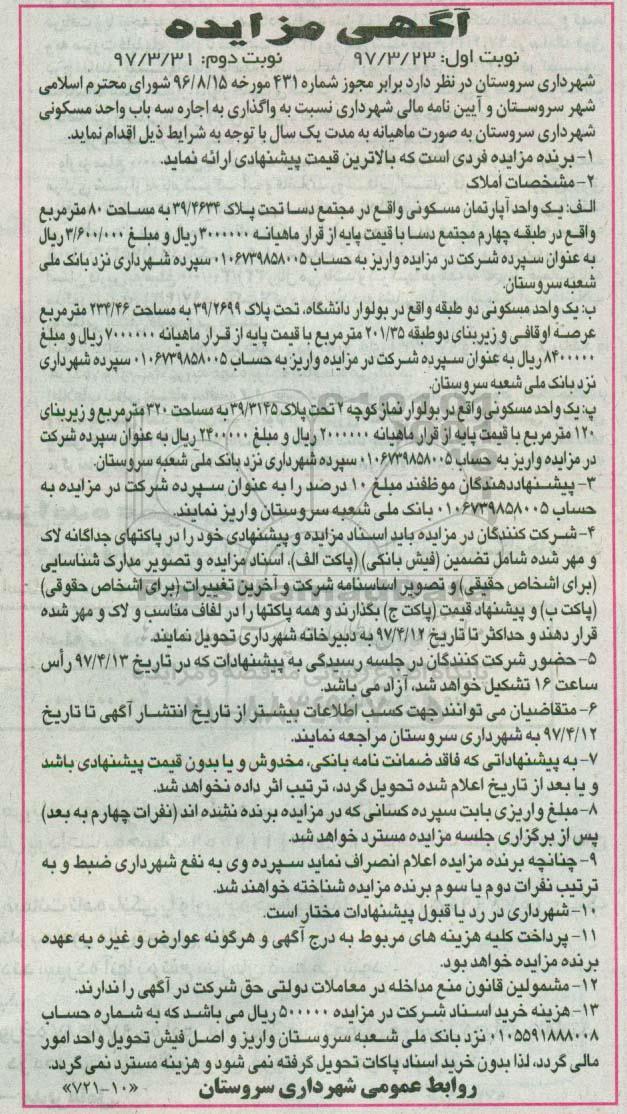 آگهی مزایده
نوبت اول: ۹۷/۳/۲۳ نوبت دوم: ۹۷/۳/۳۱
شهرداری سروستان در نظر دارد برابر مجوز شماره ۴۳۱ مورخه ۹۶/۸/۱۵ شورای محترم اسلامی
شهر سروستان و آیین نامه مالی شهرداری نسبت به واگذاری به اجاره سه باب واحد مسکونی
شهرداری سروستان به صورت ماهیانه به مدت یک سال با توجه به شرایط ذیل اقدام نماید.
۱- برنده مزایده فردی است که بالاترین قیمت پیشنهادی ارائه نماید.
۲- مشخصات املاک
الف: یک واحد آپارتمان مسکونی واقع در مجتمع دسا تحت پلاک ۳۹/۴۶۳۴ به مساحت ۸۰ مترمربع
واقع در طبقه چهارم مجتمع دسا با قیمت پایه از قرار ماهیانه ۳۰۰۰۰۰۰ ریال و مبلغ ۳/۶۰۰/۰۰۰ ریال
به عنوان سپرده شرکت در مزایده واریز به حساب ۰۱۰۶۷۳۹۸۵۸۰۰۵ سپرده شهرداری نزد بانک ملی
شعبه سروستان.
ب: یک واحد مسکونی دو طبقه واقع در بولوار دانشگاه، تحت پلاک ۳۹/۲۶۹۹ به مساحت ۲۳۴/۴۶ مترمربع
عرصه اوقافی و زیربنای دوطبقه ۲۰۱/۳۵ مترمربع با قیمت پایه از قرار ماهیانه ۷۰۰۰۰۰۰ ریال و مبلغ
۸۴۰۰۰۰۰ ریال به عنوان سپرده شرکت در مزایده واریز به حساب ۰۱۰۶۷۳۹۸۵۸۰۰۵ سپرده شهرداری
نزد بانک ملی شعبه سروستان.
پ: یک واحد مسکونی واقع در بولوار نماز کوچه ۲ تحت پلاک ۳۹/۳۱۴۵ به مساحت ۳۲۰ مترمربع و زیربنای
۱۲۰ مترمربع با قیمت پایه از قرار ماهیانه ۲۰۰۰۰۰۰ ریال و مبلغ ۲۴۰۰۰۰۰ ریال به عنوان سپرده شرکت
در مزایده واریز به حساب ۰۱۰۶۷۳۹۸۵۸۰۰۵ سپرده شهرداری نزد بانک ملی شعبه سروستان.
۳- پیشنهاددهندگان موظفند مبلغ ۱۰ درصد را به عنوان سپرده شرکت در مزایده به
حساب ۰۱۰۶۷۳۹۸۵۸۰۰۵ بانک ملی شعبه سروستان واریز نمایند.
۴- شرکت کنندگان در مزایده باید اسناد مزایده و پیشنهادی خود را در پاکتهای جداگانه لاک
و مهر شده شامل تضمین (فیش بانکی) (پاکت الف)، اسناد مزایده و تصویر مدارک شناسایی
(برای اشخاص حقیقی) و تصویر اساسنامه شرکت و آخرین تغییرات (برای اشخاص حقوقی)
(پاکت ب) و پیشنهاد قیمت (پاکت ج) بگذارند و همه پاکتها را در لفاف مناسب و لاک و مهر شده
قرار دهند و حداکثر تا تاریخ ۹۷/۴/۱۲ به دبیرخانه شهرداری تحویل نمایند.
۵- حضور شرکت کنندگان در جلسه رسیدگی به پیشنهادات که در تاریخ ۹۷/۴/۱۳ رأس
ساعت ۱۶ تشکیل خواهد شد، آزاد می باشد.
۶- متقاضیان می توانند جهت کسب اطلاعات بیشتر از تاریخ انتشار آگهی تا تاریخ
۹۷/۴/۱۲ به شهرداری سروستان مراجعه نمایند.
۷- به پیشنهاداتی که فاقد ضمانت نامه بانکی، مخدوش و یا بدون قیمت پیشنهادی باشد
و یا بعد از تاریخ اعلام شده تحویل گردد، ترتیب اثر داده نخواهد شد.
۸- مبلغ واریزی بابت سپرده کسانی که در مزایده برنده نشده اند (نفرات چهارم به بعد)
پس از برگزاری جلسه مزایده مسترد خواهد شد.
۹- چنانچه برنده مزایده اعلام انصراف نماید سپرده وی به نفع شهرداری ضبط و به
ترتیب نفرات دوم یا سوم برنده مزایده شناخته خواهند شد.
۱۰- شهرداری در رد یا قبول پیشنهادات مختار است.
۱۱- پرداخت کلیه هزینه های مربوط به درج آگهی و هرگونه عوارض و غیره به عهده
برنده مزایده خواهد بود.
۱۲- مشمولین قانون منع مداخله در معاملات دولتی حق شرکت در آگهی را ندارند.
۱۳- هزینه خرید اسناد شرکت در مزایده ۵۰۰۰۰۰ ریال می باشد که به شماره حساب
۰۱۰۵۵۹۱۸۸۸۰۰۸ نزد بانک ملی شعبه سروستان واریز و اصل فیش تحویل واحد امور
مالی گردد، لذا بدون خرید اسناد پاکات تحویل گرفته نمی شود و هزینه مسترد نمی گردد.
روابط عمومی شهرداری سروستان «۱۰-۷۲۱»